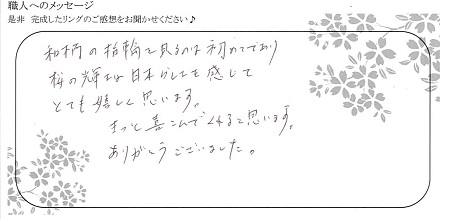 職人へのメッセージ
是非 完成したリングのご感想をお聞かせください♪
和柄の指輪を見るのは初めてであり
桜の輝きは日本らしさを感じて
とても嬉しく思います。
きっと喜こんでくれると思います。
ありがとうございました。